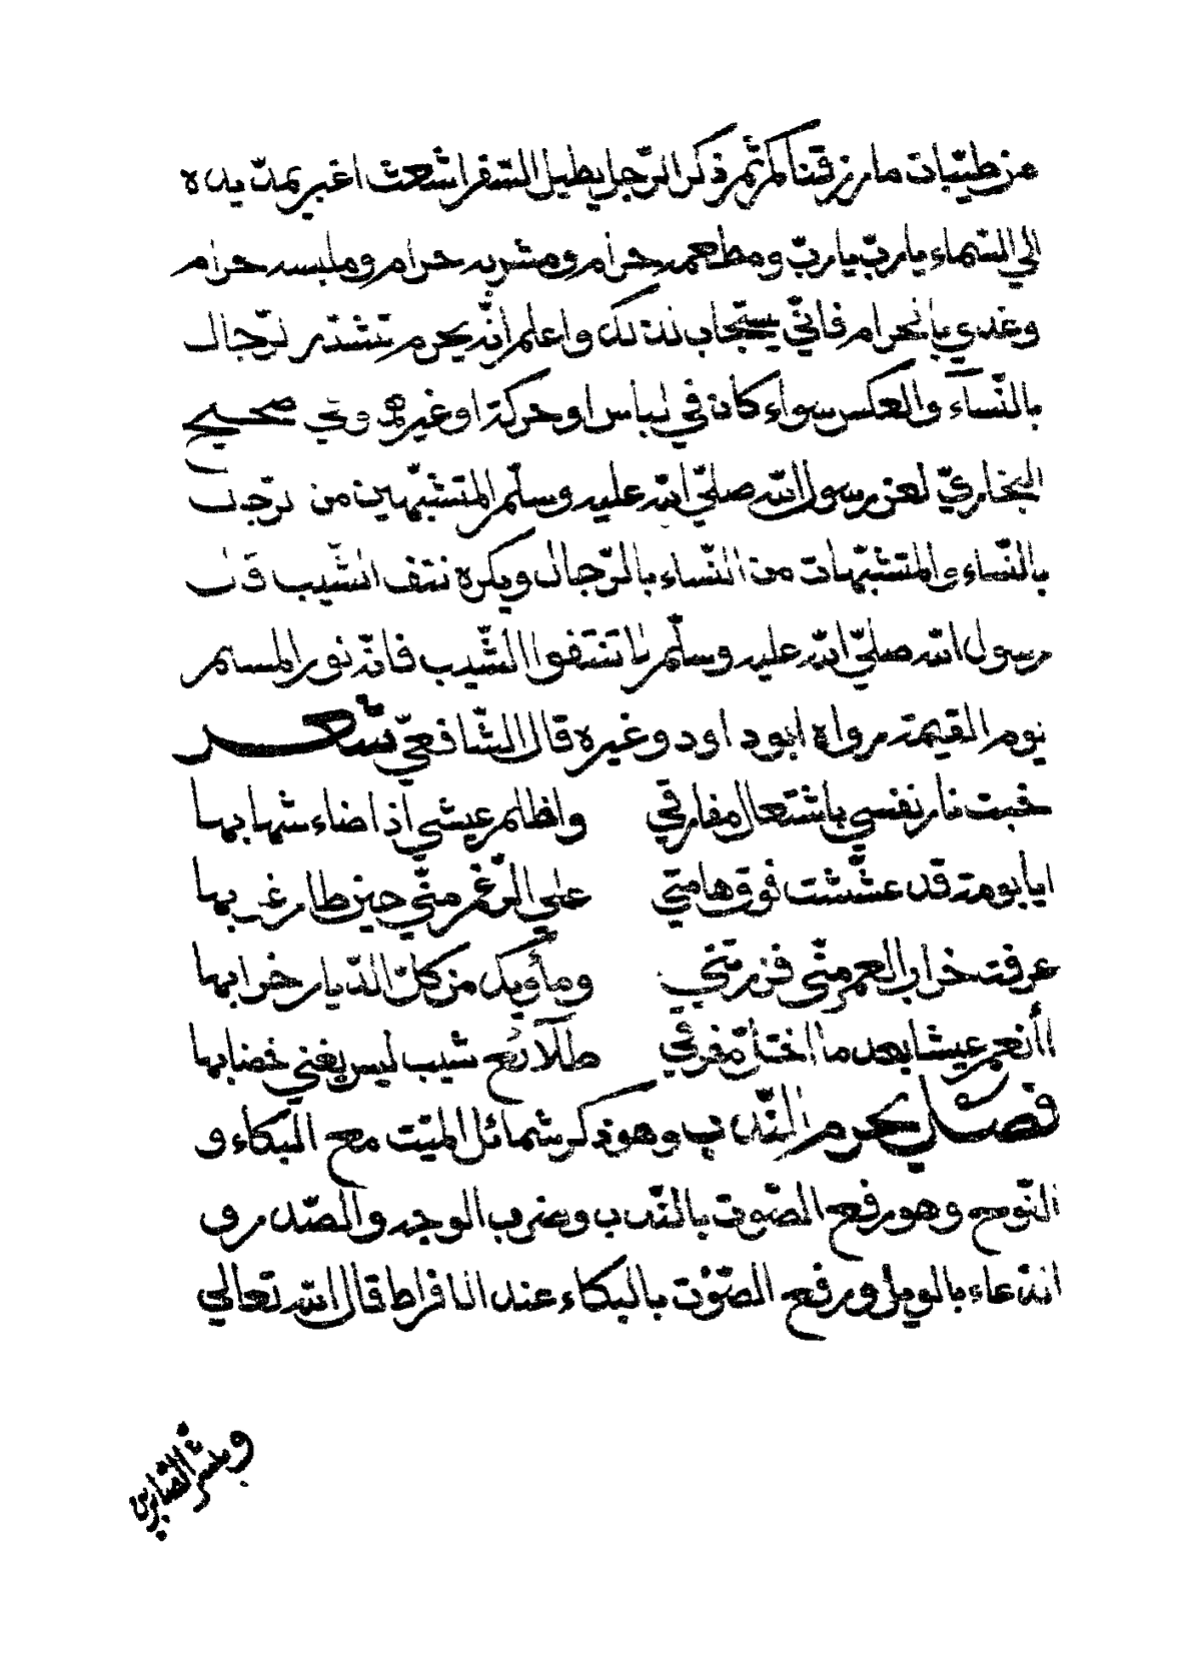 من طيّبات ما رزقناكم ثم ذكر الرّجل يطيل السّفر اشعث اغبر يمدّ يده
الي السّماء يا ربّ يا ربّ ومطعمه حرام ومشربه حرام وملبسه حرام
وغدي بالحرام فانّي يستجاب لذلك واعلم انّه يحرم تشبّه الرّجال
بالنّسآء والعكس سواء كان في لباس او حركة او غيرهما وفي صحيح
البخاريّ لعن رسول الله صلّي الله عليه وسلّم المتشبّهين من الرّجال
بالنّساء والمتشبّهات من النّساء بالرّجال ويكره نتف الشّيب قال
رسول الله صلّي الله عليه وسلّم لا تنتفوا الشّيب فانّه نور المسلم
يوم القيمة رواه ابو داود وغيره قال الشّافعيّ شعر
خبت نار نفسي باشتعال مفارقي واظلم عيشي اذا ضاء شهابها
ايا بومة قد عشّشت فوق هامتي علي الرّغم منّي حين طار غرابها
عرفت خراب العمر منّي فزرتني ومأويك من كلّ الدّيار خرابها
أأنعم عيشا بعد ما حلّ مفرقي طلآئع شيب ليس يغني خضابها
فصل يحرم النّدب وهو ذكر شمائل الميّت مع البكاء و
النّوح وهو رفع الصّوت بالنّدب وضرب الوجه والصّدر و
الدّعاء بالويل ورفع الصّوت بالبكاء عند الافراط قال الله تعالي
وبشّر الصّابرين